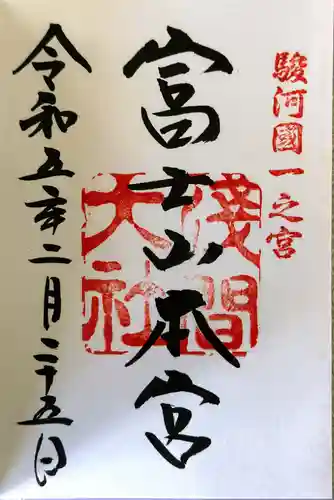 駿河國一之宮
富士山本宮
淺間
大社
令和五年二月二十五日